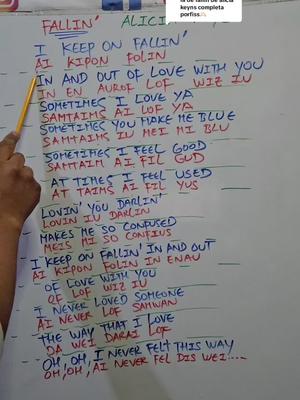 la de fallin de alicia
keyns completa
porfiss🙏
FALLIN' ALICIA
I KEEP ON FALLIN'
AI KIPON FOLIN
IN AND OUT OF LOVE WITH YOU
IN EN AUROF LOF WIZ IU
SOMETIMES I LOVE YA
SAMTAIMS AI LOF YA
SOMETIMES YOU MAKE ME BLUE
SAMTAIMS IU MEI MI BLU
SOMETIMES I FEEL GOOD
SAMTAIM AI FIL GUD
AT TIMES I FEEL USED
AT TAIMS AI FIL YUS
LOVIN' YOU DARLIN'
LOVIN IU DARLIN
MAKES ME SO CONFUSED
MEIS MI SO CONFIUS
I KEEP ON FALLIN' IN AND OUT
AI KIPON FOLIN IN ENAU
OF LOVE WITH YOU
OF LOF WIZ IU
I NEVER LOVED SOMEONE
AI NEVER LOF SAMUAN
THE WAY THAT I LOVE
DA WEI DARAI LOF
OH, OH, I NEVER FELT THIS WAY
OH, OH, AI NEVER FEL DIS WEI....